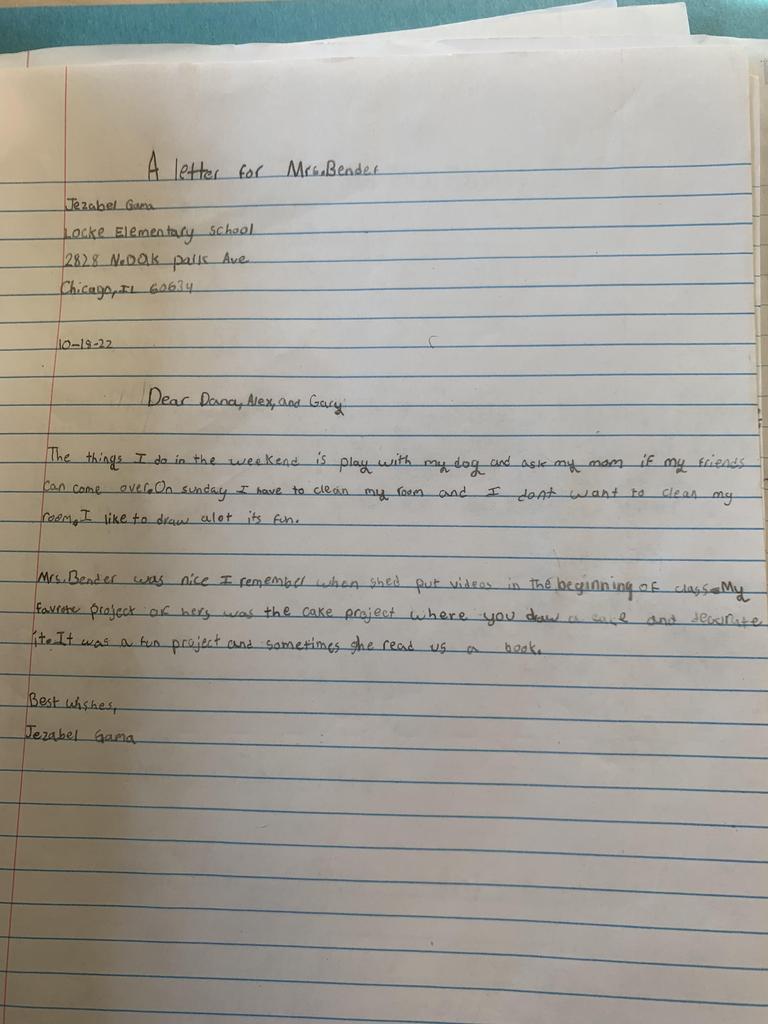 A letter for Mrs.Bender
Jezabel Gama
Locke Elementary School
2828 N.Oak park Ave
Chicago, IL 60634
10-18-22
Dear Dana, Alex, and Gary
The things I do in the weekend is play with my dog and ask my mom if my friends
can come over. On sunday I have to clean my room and I dont want to clean my
room. I like to draw alot its fun.
Mrs.Bender was nice I remember when shed put videos in the beginning of class. My
favrote project of hers was the cake project where you draw a cake and decorate
it. It was a fun project and sometimes she read us a book.
Best wishes,
Jezabel Gama